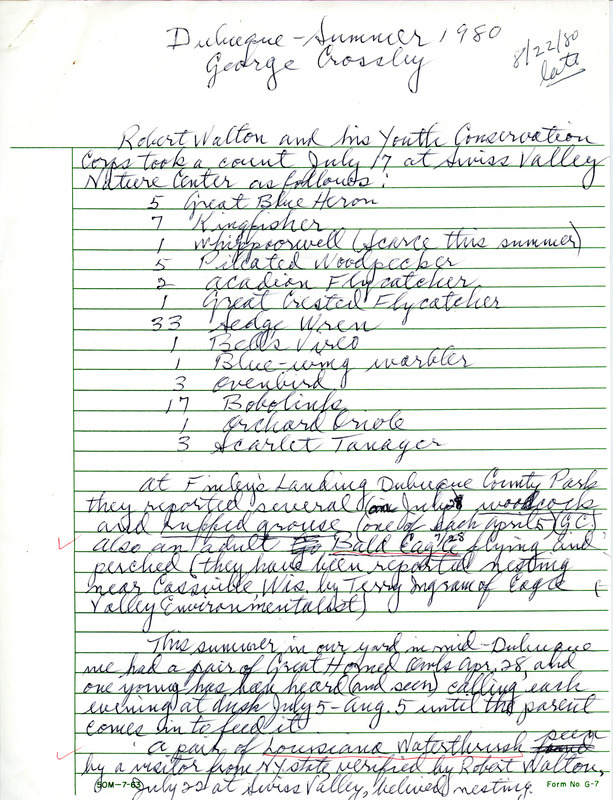 Dubuque - Summer 1980
George Crossley
8/22/80
late
Robert Walton and his Youth Conservation
Corps took a count July 17 at Swiss Valley
Nature Center as follows:
5 Great Blue Heron
7 Kingfisher
1 Whippoorwell (scarce this summer)
5 Pileated Woodpecker
2 Acadian Flycatcher
1 Great Crested Flycatcher
33 Sedge Wren
1 Bell's Vireo
1 Blue-wing warbler
3 Ovenbird
17 Bobolink
1 Orchard Oriole
3 Scarlet Tanager
At Finley's Landing Dubuque County Park
they reported several (on July 28 woodcock
and ruffed grouse (one of each April 5) (GC)
Also an adult Bald Eagle 7/28 flying and
perched (they have been reported nesting
near Cassville, Wis. by Terry Ingram of Eagle
Valley Environmentalist)
This summer in our yard in mid-Dubuque
we had a pair of Great Horned Owls Apr. 28, and
one young has been heard (and seen) calling each
evening at dusk July 5 - Aug. 5 until the parent
comes in to feed it.
A pair of Louisiana Waterthrush seen
by a visitor from NY state, verified by Robert Walton,
July 22 at Swiss Valley, believed nesting.
SOM-7-63
Form No. G-7